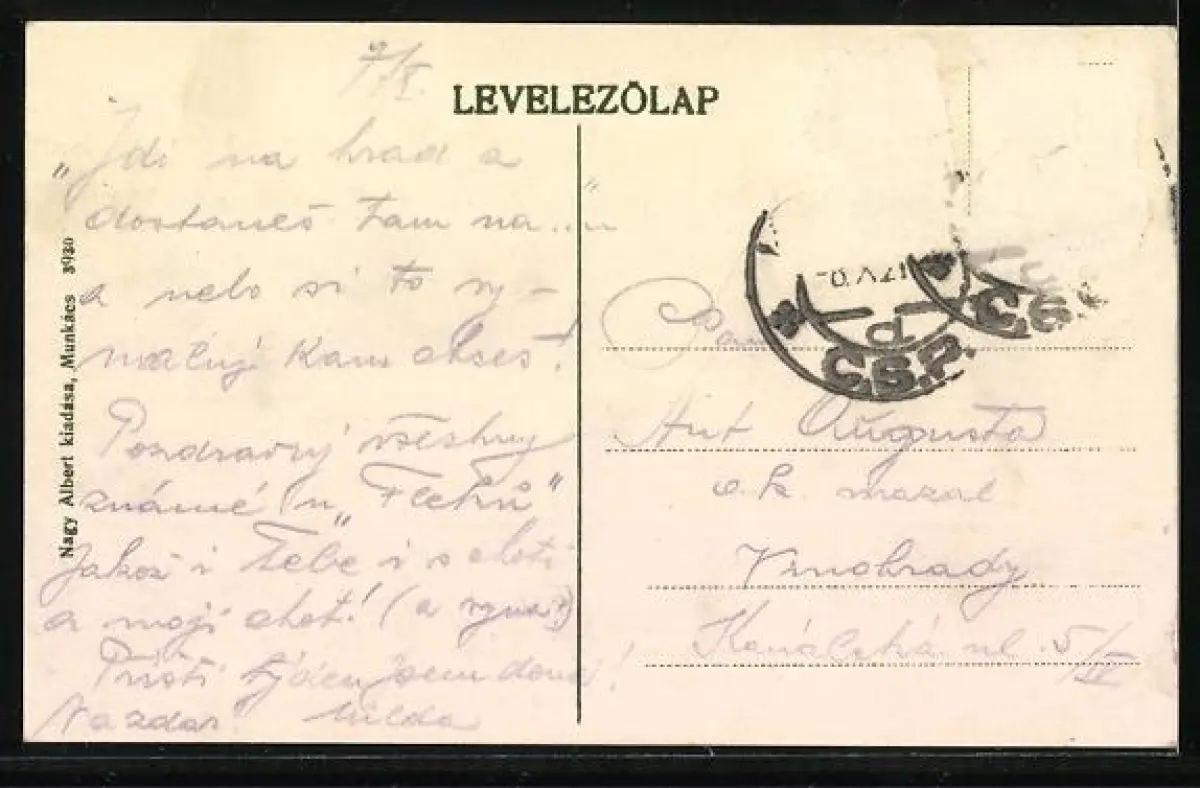 7/X.
LEVELEZŐLAP
„Jdi na hrad a
dostaneš tam na...u“
a nebo si to vy-
maluj kam chceš!
Pozdravuj všechny
známé u „Fleků“
Jakož i Tebe i s chotí
a mojí choť! (a
Příští týden jsem doma!
Nazdar Milda
Nagy Albert kiadása, Munkács 3930
Pan
Ant Augusta
malal
Vinohrady
ul. 5/II
X 21
d
Č.S.P.